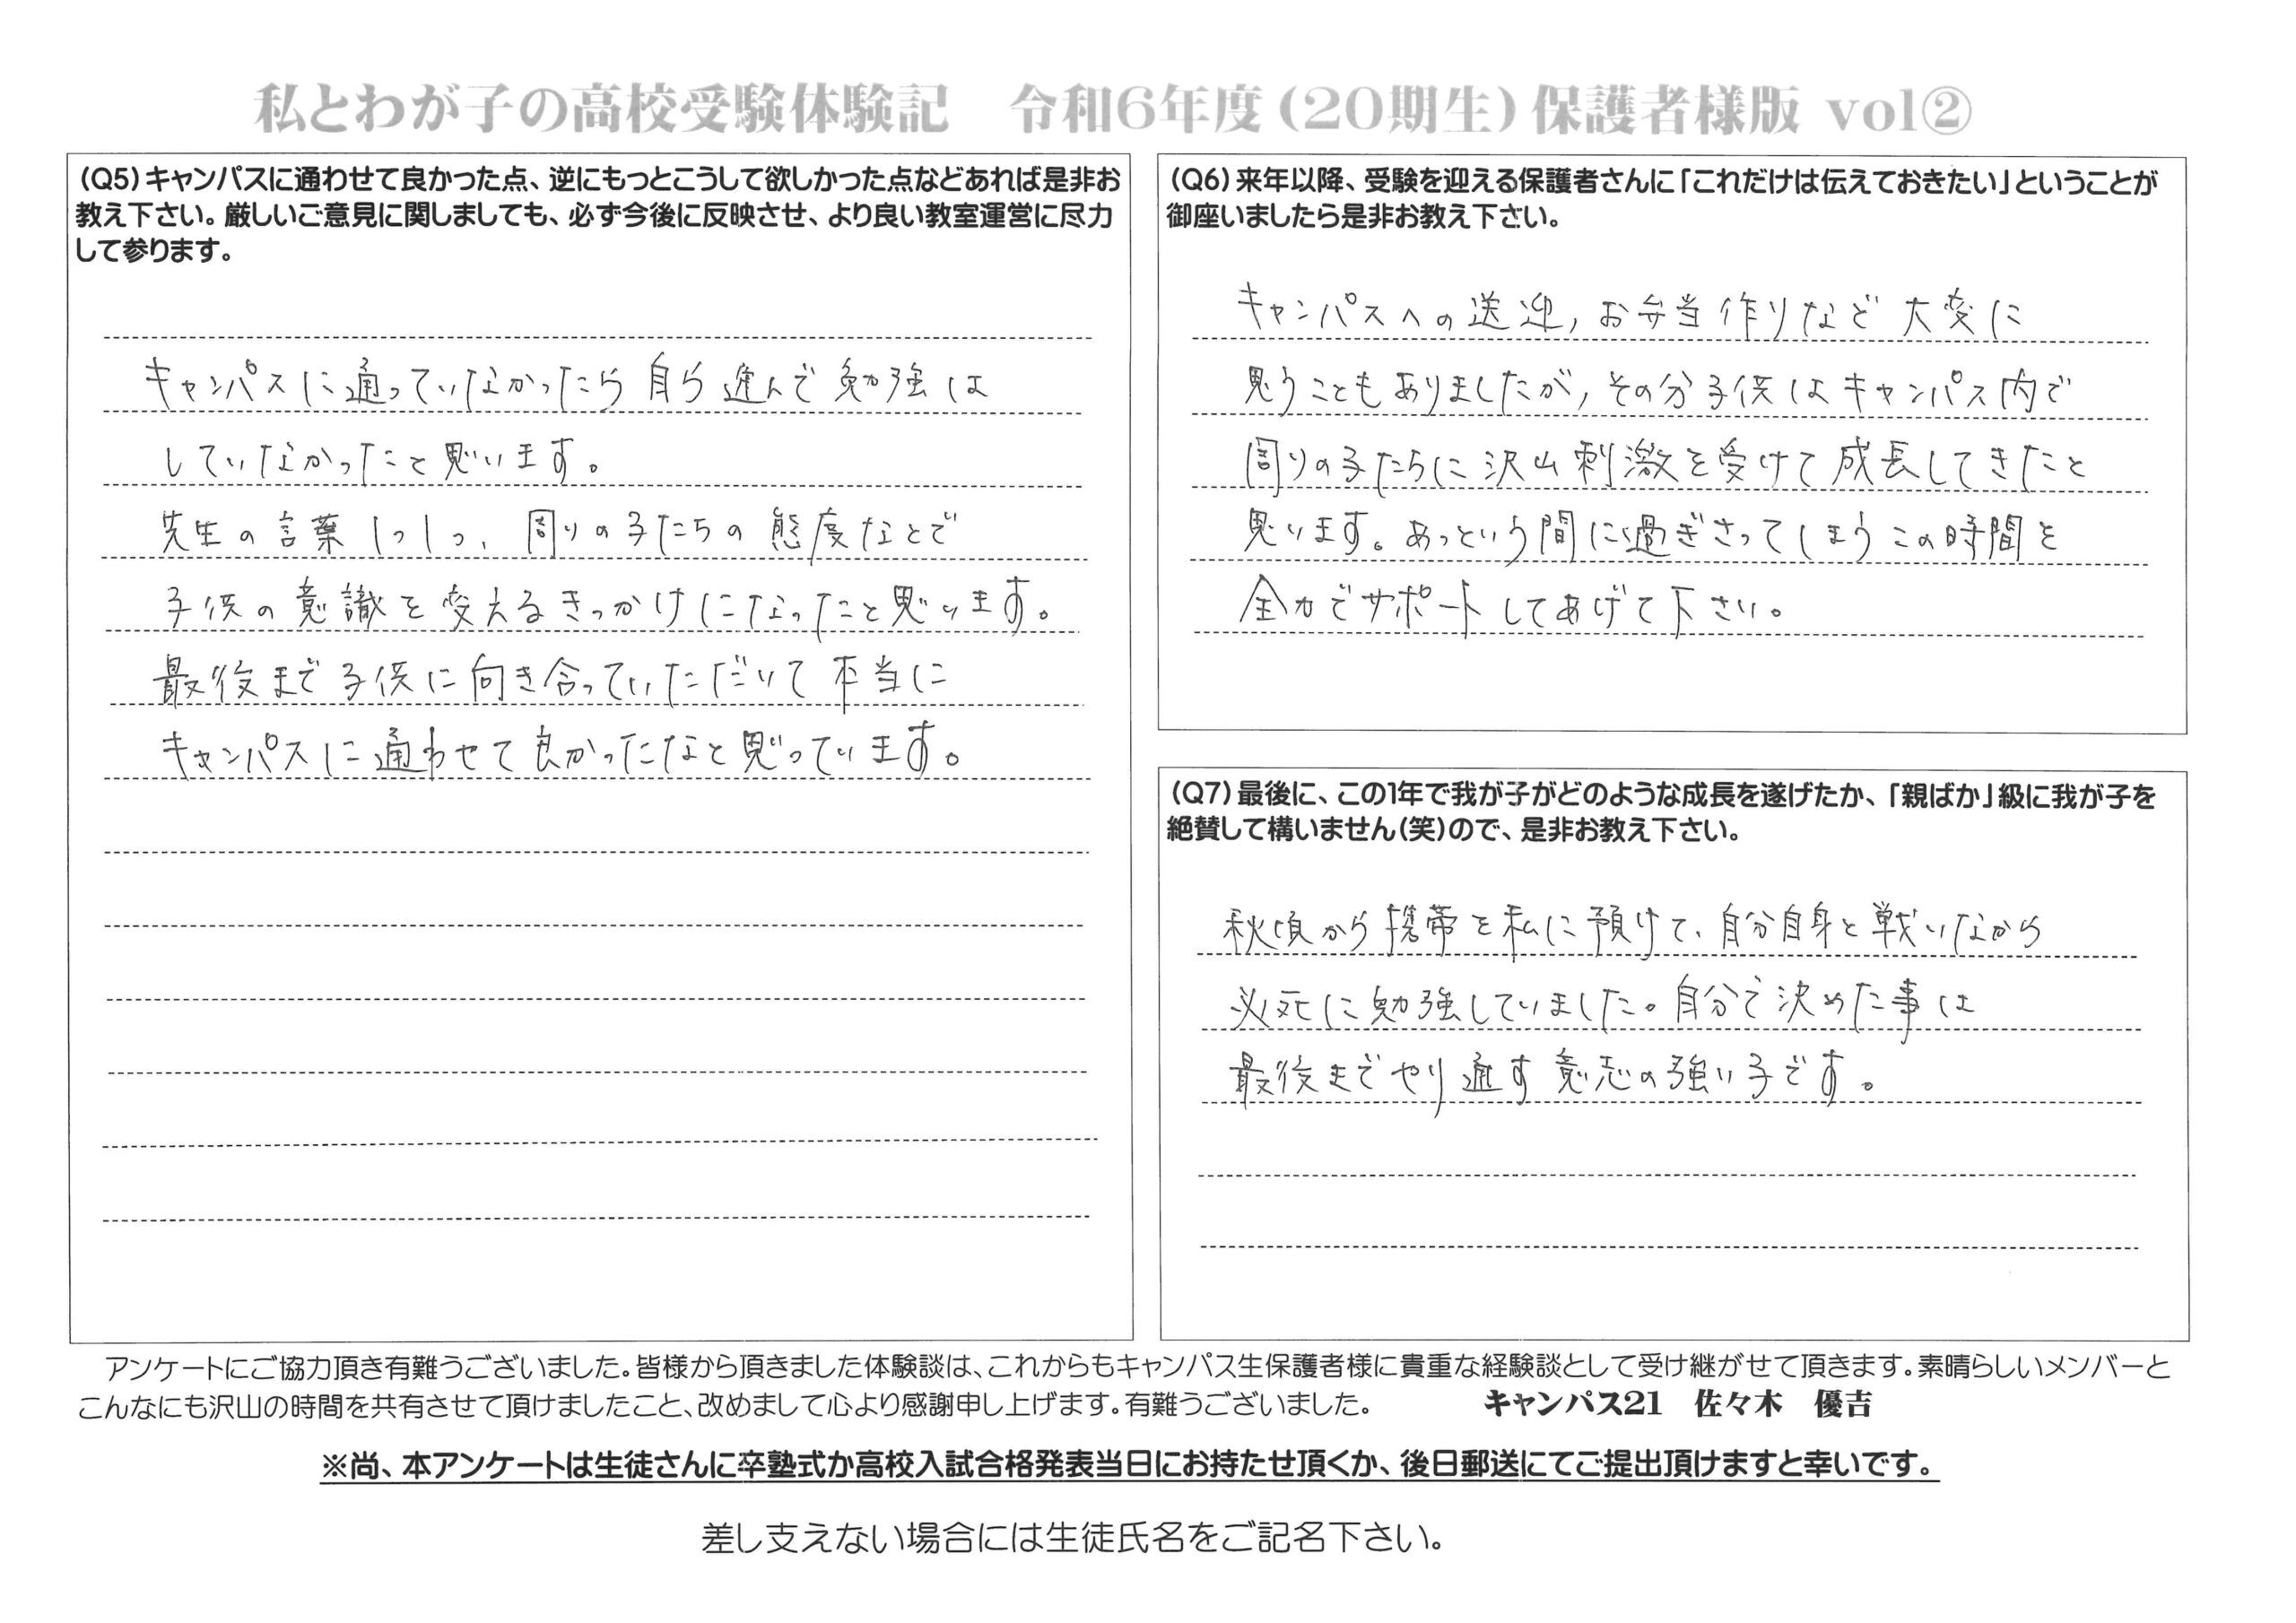 私とわが子の高校受験体験記　令和6年度(20期生)保護者様版 vol②
(Q5)キャンパスに通わせて良かった点、逆にもっとこうして欲しかった点などあれば是非お
教え下さい。厳しいご意見に関しましても、必ず今後に反映させ、より良い教室運営に尽力
して参ります。
キャンパスに通っていなかったら自ら進んで勉強は
していなかったと思います。
先生の言葉1つ1つ、周りの子たちの態度などで
子供の意識を変えるきっかけになったと思います。
最後まで子供に向き合っていただいて本当に
キャンパスに通わせて良かったなと思っています。
(Q6)来年以降、受験を迎える保護者さんに「これだけは伝えておきたい」ということが
御座いましたら是非お教え下さい。
キャンパスへの送迎,お弁当作りなど大変に
思うこともありましたが,その分子供はキャンパス内で
周りの子たちに沢山刺激を受けて成長してきたと
思います。あっという間に過ぎさってしまうこの時間を
全力でサポートしてあげて下さい。
(Q7)最後に、この1年で我が子がどのような成長を遂げたか、「親ばか」級に我が子を
絶賛して構いません(笑)ので、是非お教え下さい。
秋頃から携帯を私に預けて、自分自身と戦いながら
必死に勉強していました。自分で決めた事は
最後までやり通す意志の強い子です。
アンケートにご協力頂き有難うございました。皆様から頂きました体験談は、これからもキャンパス生保護者様に貴重な経験談として受け継がせて頂きます。素晴らしいメンバーと
こんなにも沢山の時間を共有させて頂けましたこと、改めまして心より感謝申し上げます。有難うございました。　キャンパス21　佐々木　優吉
※尚、本アンケートは生徒さんに卒塾式か高校入試合格発表当日にお持たせ頂くか、後日郵送にてご提出頂けますと幸いです。
差し支えない場合には生徒氏名をご記名下さい。